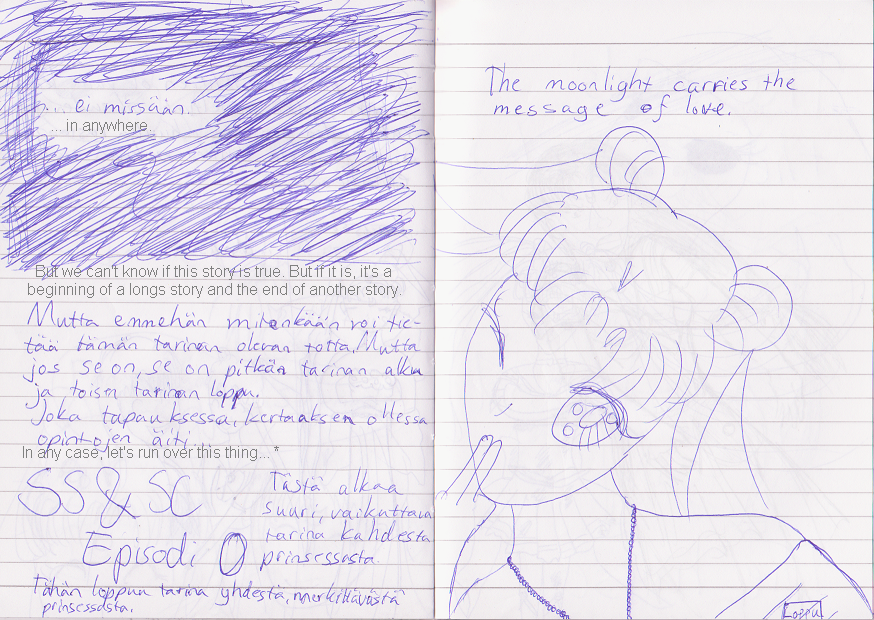 ... ei missään.
... in anywhere.
But we can't know if this story is true. But if it is, it's a
beginning of a longs story and the end of another story.
Mutta emmehän mitenkään voi tie-
tää tämän tarinan olevan totta. Mutta
jos se on, se on pitkän tarinan alku
ja toisen tarinan loppu.
Joka tapauksessa, kertauksen ollessa
opintojen äiti...
In any case, let's run over this thing... *
SS & SC
Episodi 0
Tästä alkaa
suuri, vaikuttava
tarina kahdesta
prinsessasta.
Tähän loppuu tarina yhdestä, merkittävästä
prinsessasta.
The moonlight carries the
message of love.
Loppu